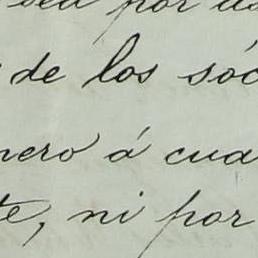 sea por
de los sóc
nero á cua
te, ni por